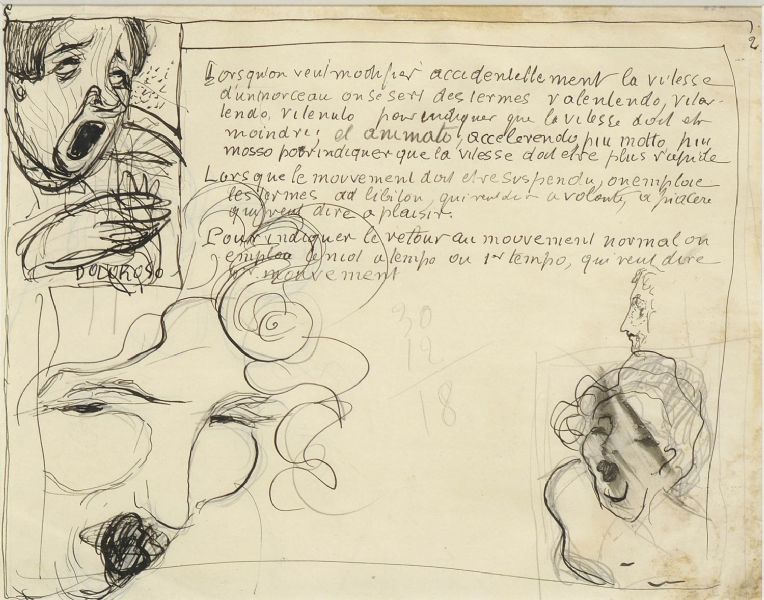 2
Lorsqu'on veut modifier accidentellement la vitesse
d'un morceau on se sert des termes ralentendo, ritar-
dendo, ritenuto pour indiquer que la vitesse doit etr
moindre; et animato, accelerendo, piu motto, piu
mosso pour indiquer que la vitesse doit etre plus rapide
Lorsque le mouvement doit etre suspendu, on emploie
les termes ad libiton, qui veut dir a volonté, a piacere
qui veut dire a plaisir.
Pour indiquer le retour au mouvement normal on
emploie le mot a tempo ou 1er tempo, qui veut dire
mouvement
DOLOROSO
30
12
18